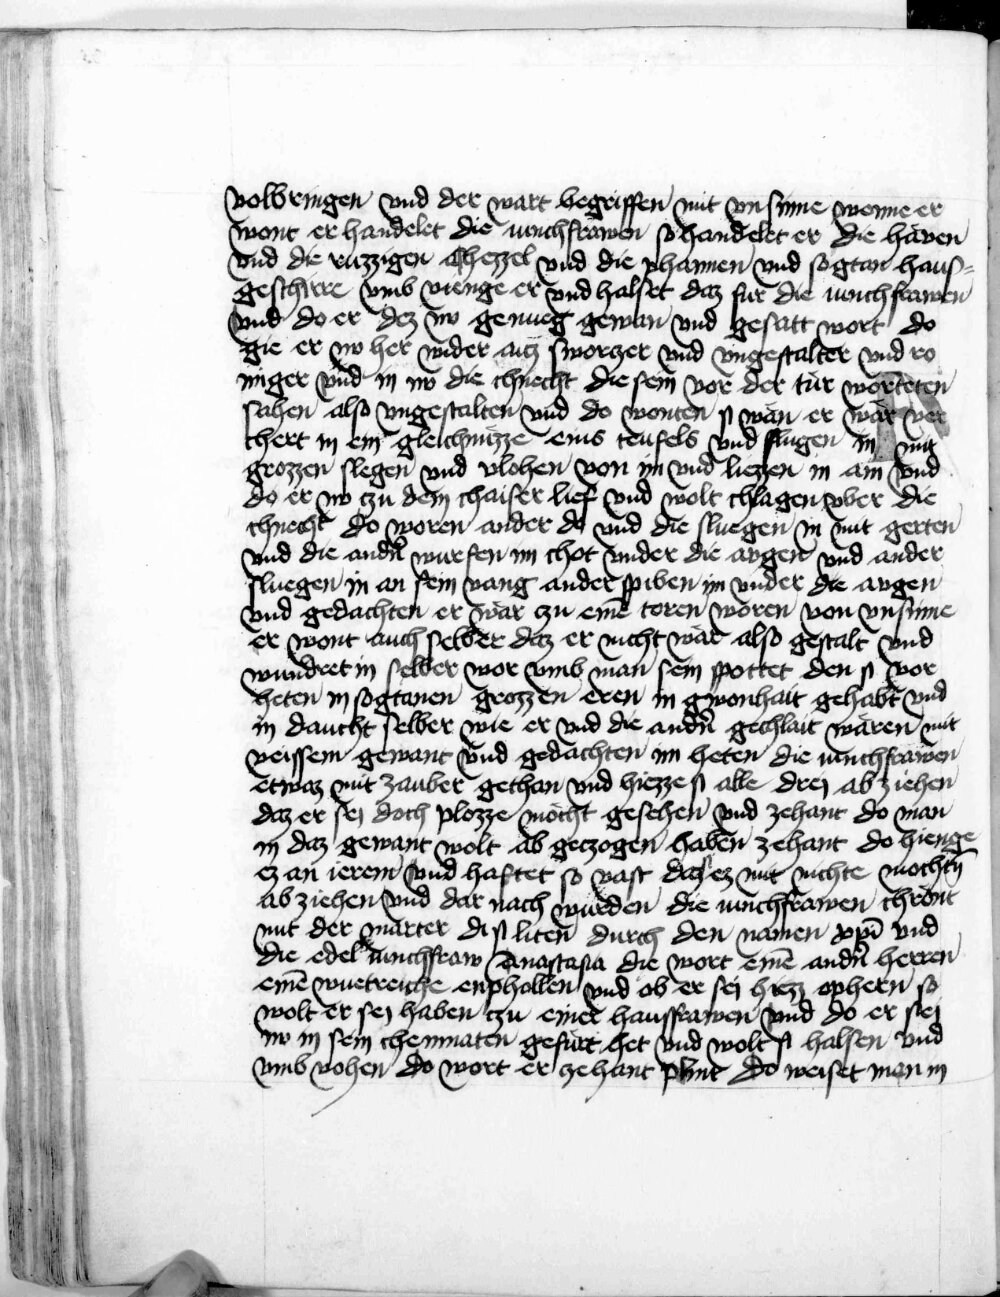 volbringen vnd der wart begriffen mit vnsinne wenne er
wont er handelet die iunchfrawen so handelet er die häven
vnd die ruzzigen chezzel vnd die phannen vnd sogtan haus-
geschirre vmb vienge er vnd halset daz fur die iunchfrawen
vnd do er dez nv genueg gewan vnd gesatt wort do
gie er nv her wider auz sworczer vnd vngestalter vnd ro
niger vnd in nv die chnecht die sein vor der tür worteten
sahen also vngestalten vnd do wonten si wan er wär ver
chert in ein gleichnizze eins teufels vnd slugen in mit
grozzen slegen vnd vlohen von im vnd liezzen in ain vnd
do er nv czu dem chaiser lief vnd wolt chlagen vber die
chnecht do woren ander do vnd die sluegen in mit gerten
vnd die andn̄ wurfen im chot vnder die augen vnd ander
sluegen in an sein wang ander spiben im vnder die augen
vnd gedachten er wär czu eine toren woren von vnsinne
er wont auch selber daz er nicht wär also gestalt vnd
wundret in selber wor vmb man sein spottet den si vor
heten in sogtanen grozzen eren in gwonhait gehabt vnd
in daucht selber wie er vnd die andn̄ gechlait wären mit
veissem gewant vnd gedachten im heten die iunchfrawen
etwaz mit zauber gethan vnd hiezze si alle drei ab ziehen
daz er sei doch plozze möcht gesehen vnd zehant do man
in daz gewant wolt ab geczogen haben zehant do hienge
ez an ierem vnd haftet so vast das ez mit nichte mochtn̄
ab ziehen vnd dar nach wurden die iunchfrawen chrönt
mit der marter di si liten durch den namen xp̄i vnd
die edel iunchfraw Anastasia die wort eine andn̄ herren
eine wuetreiche enpholhen vnd ob er sei hiezz ophern so
wolt er sei haben czu einer hausfrawen vnd do er sei
nv in sein chemnaten gefürt het vnd wolt si halsen vnd
vmb vohen do wort er zehant plint do weiset man in